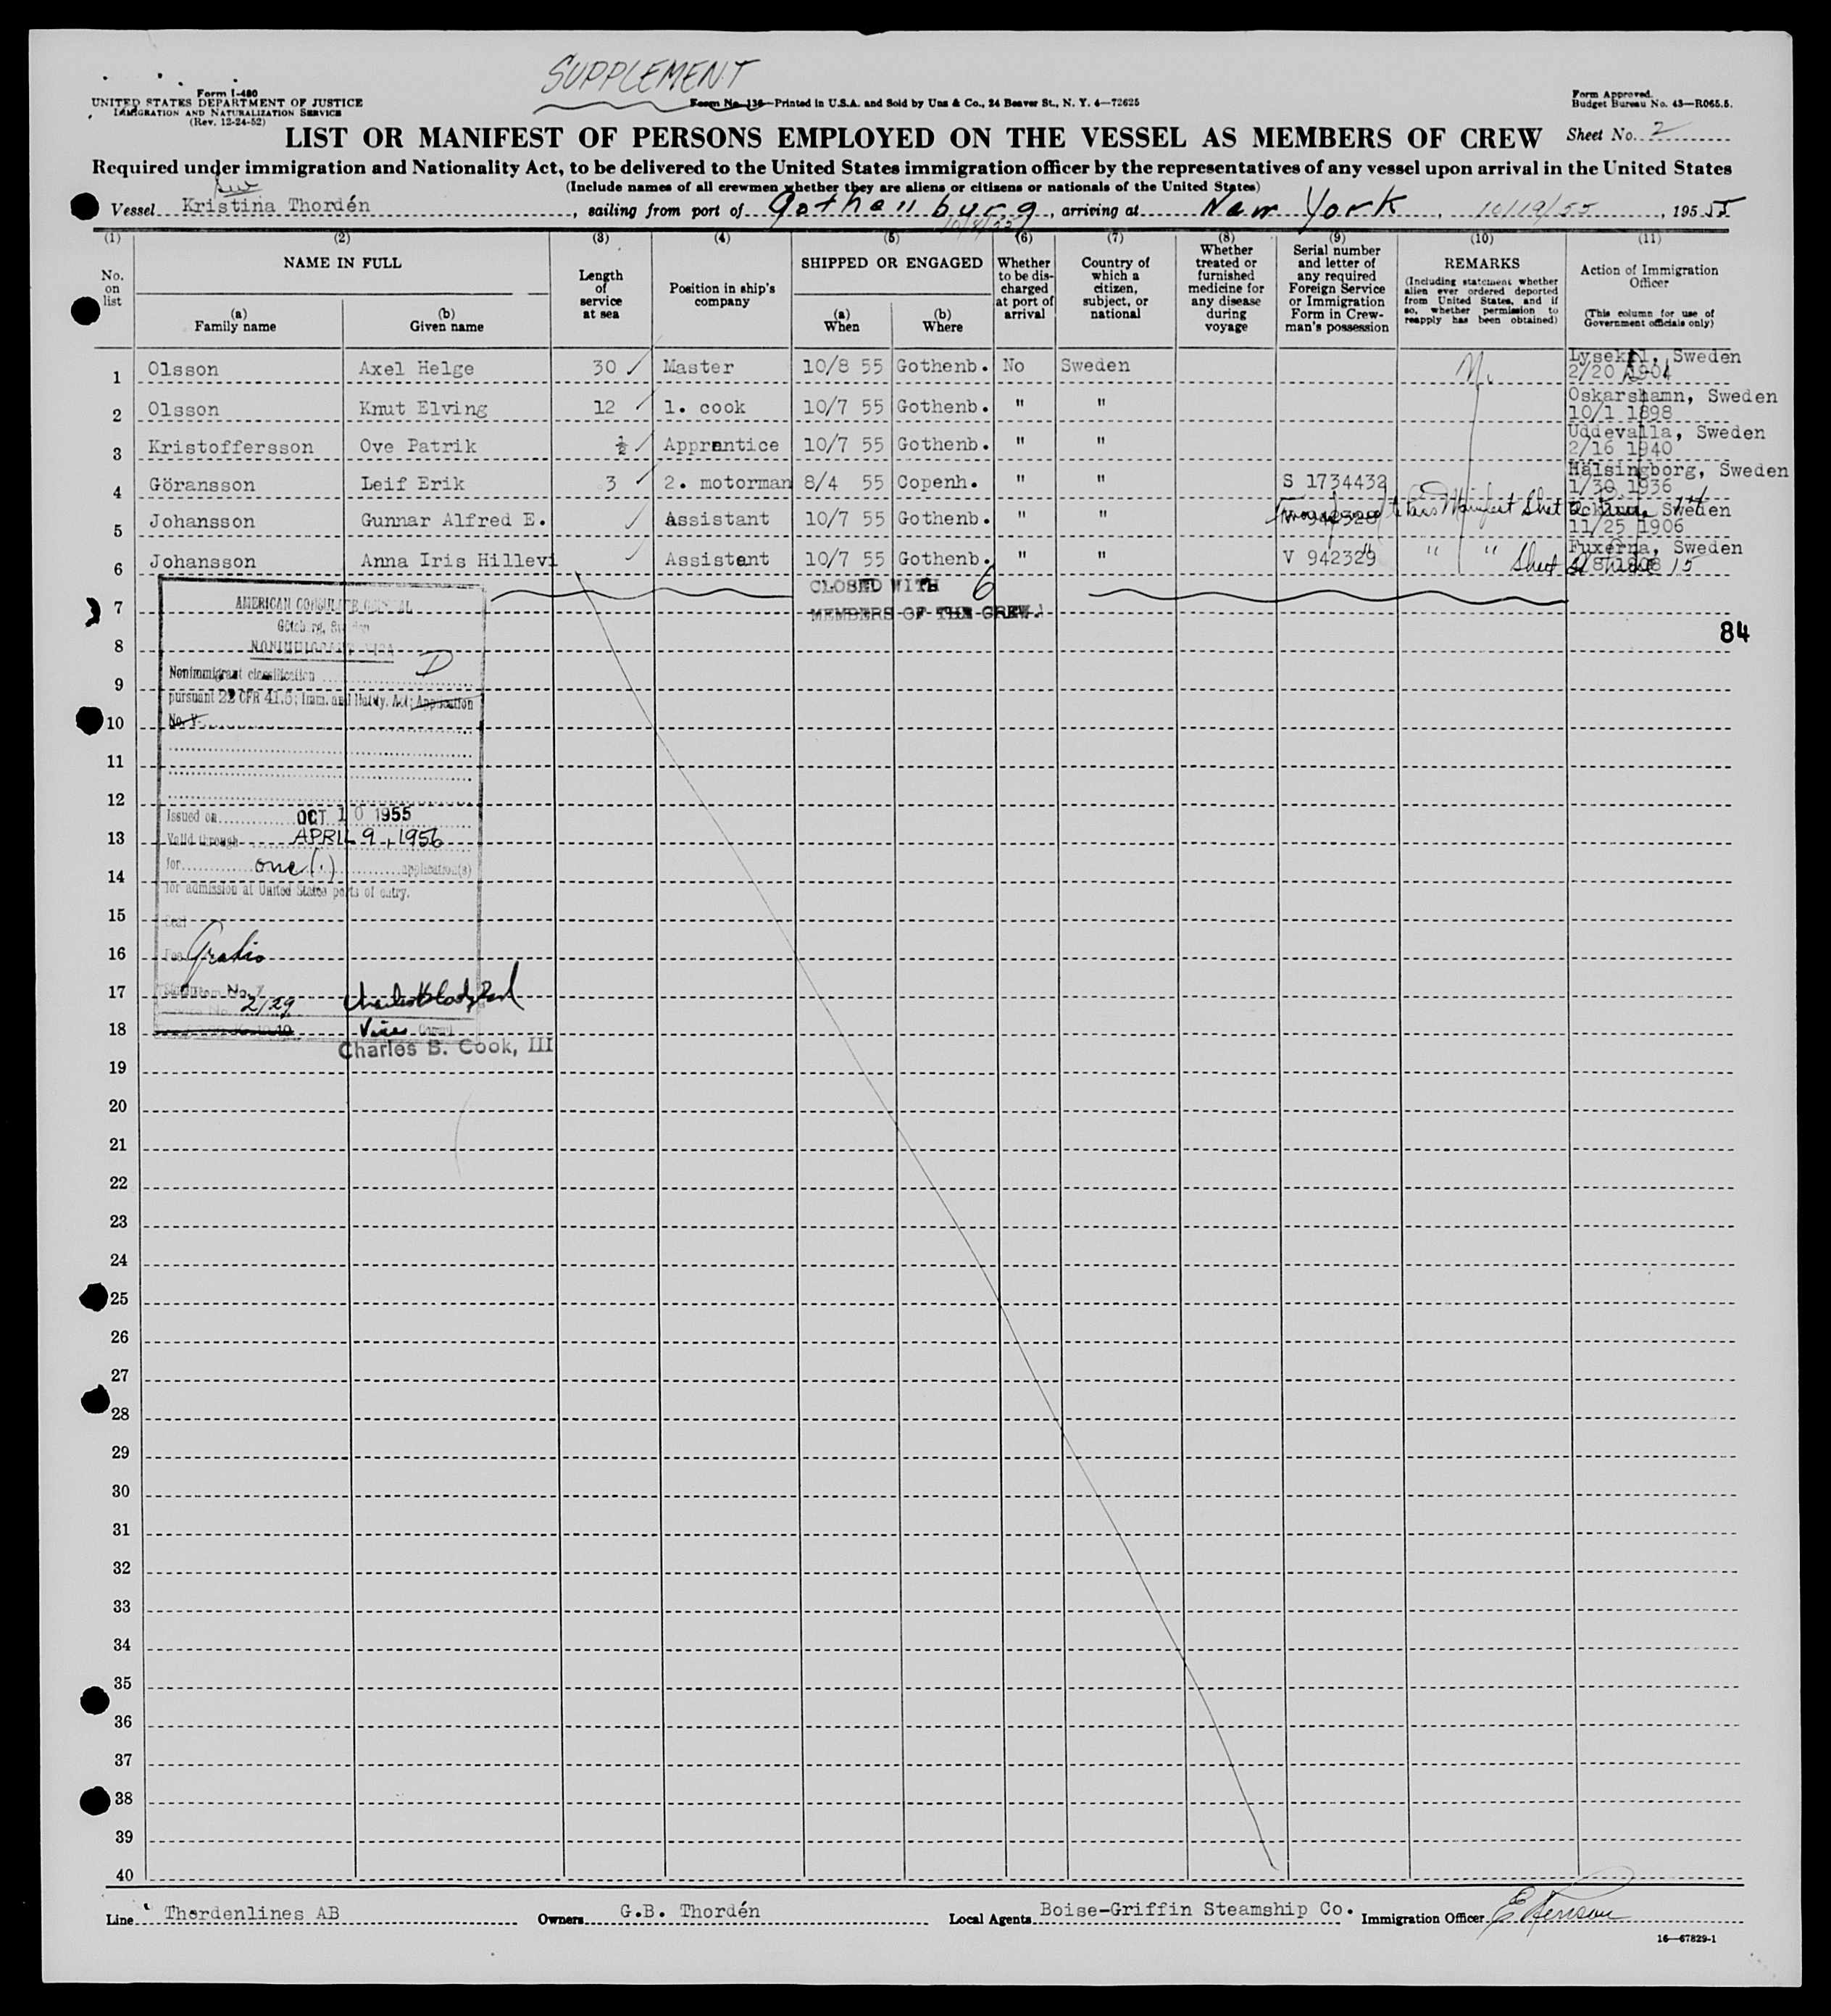 SUPPLEMENT
Form I-480
UNITED STATES DEPARTMENT OF JUSTICE
IMMIGRATION AND NATURALIZATION SERVICE
(Rev. 12-24-52)
Form No. 136—Printed in U.S.A. and Sold by Unz & Co., 24 Beaver St., N. Y. 4—72625
Form Approved.
Budget Bureau No. 43—R065.5.
LIST OR MANIFEST OF PERSONS EMPLOYED ON THE VESSEL AS MEMBERS OF CREW
Sheet No. 2
Required under immigration and Nationality Act, to be delivered to the United States immigration officer by the representatives of any vessel upon arrival in the United States
(Include names of all crewmen whether they are aliens or citizens or nationals of the United States)
Vessel Kristina Thordén, sailing from port of Gothenburg, arriving at New York, 10/19/55, 195 55
10/8/55
(1) (2) (3) (4) (5) (6) (7) (8) (9) (10) (11)
No. on list
NAME IN FULL
(a) Family name
(b) Given name
Length of service at sea
Position in ship's company
SHIPPED OR ENGAGED
(a) When
(b) Where
Whether to be discharged at port of arrival
Country of which a citizen, subject, or national
Whether treated or furnished medicine for any disease during voyage
Serial number and letter of any required Foreign Service or Immigration Form in Crewman's possession
REMARKS
(Including statement whether alien ever ordered deported from United States, and if so, whether permission to reapply has been obtained)
Action of Immigration Officer
(This column for use of Government officials only)
1 Olsson Axel Helge 30 Master 10/8 55 Gothenb. No Sweden Lysekil, Sweden
2/20 1904
2 Olsson Knut Elving 12 1. cook 10/7 55 Gothenb. " " Oskarshamn, Sweden
10/1 1898
3 Kristoffersson Ove Patrik ½ Apprentice 10/7 55 Gothenb. " " Uddevalla, Sweden
2/16 1940
4 Göransson Leif Erik 3 2. motorman 8/4 55 Copenh. " " S 1734432 Hälsingborg, Sweden
1/30 1936
5 Johansson Gunnar Alfred E. Assistant 10/7 55 Gothenb. " " V 942328 Manifest Sheet Sweden
11/25 1906
6 Johansson Anna Iris Hillevi Assistent 10/7 55 Gothenb. " " V 942329 " " Sheet Fuxerna, Sweden
15
CLOSED WITH 6
MEMBERS OF THE CREW.
84
AMERICAN CONSULATE GENERAL
Göteborg, Sweden
NONIMMIGRANT VISA
Nonimmigrant classification D
pursuant 22 CFR 41.5; Imm. and Natly. Act; Application
No. V-
Issued on OCT 10 1955
Valid through APRIL 9, 1956
for one (1) application(s)
for admission at United States ports of entry.
Seal
Fee Gratis
2129
Vice Consul
Charles B. Cook, III
7
8
9
10
11
12
13
14
15
16
17
18
19
20
21
22
23
24
25
26
27
28
29
30
31
32
33
34
35
36
37
38
39
40
Line Thordenlines AB Owners G.B. Thordén Local Agents Boise-Griffin Steamship Co. Immigration Officer
16—67829-1